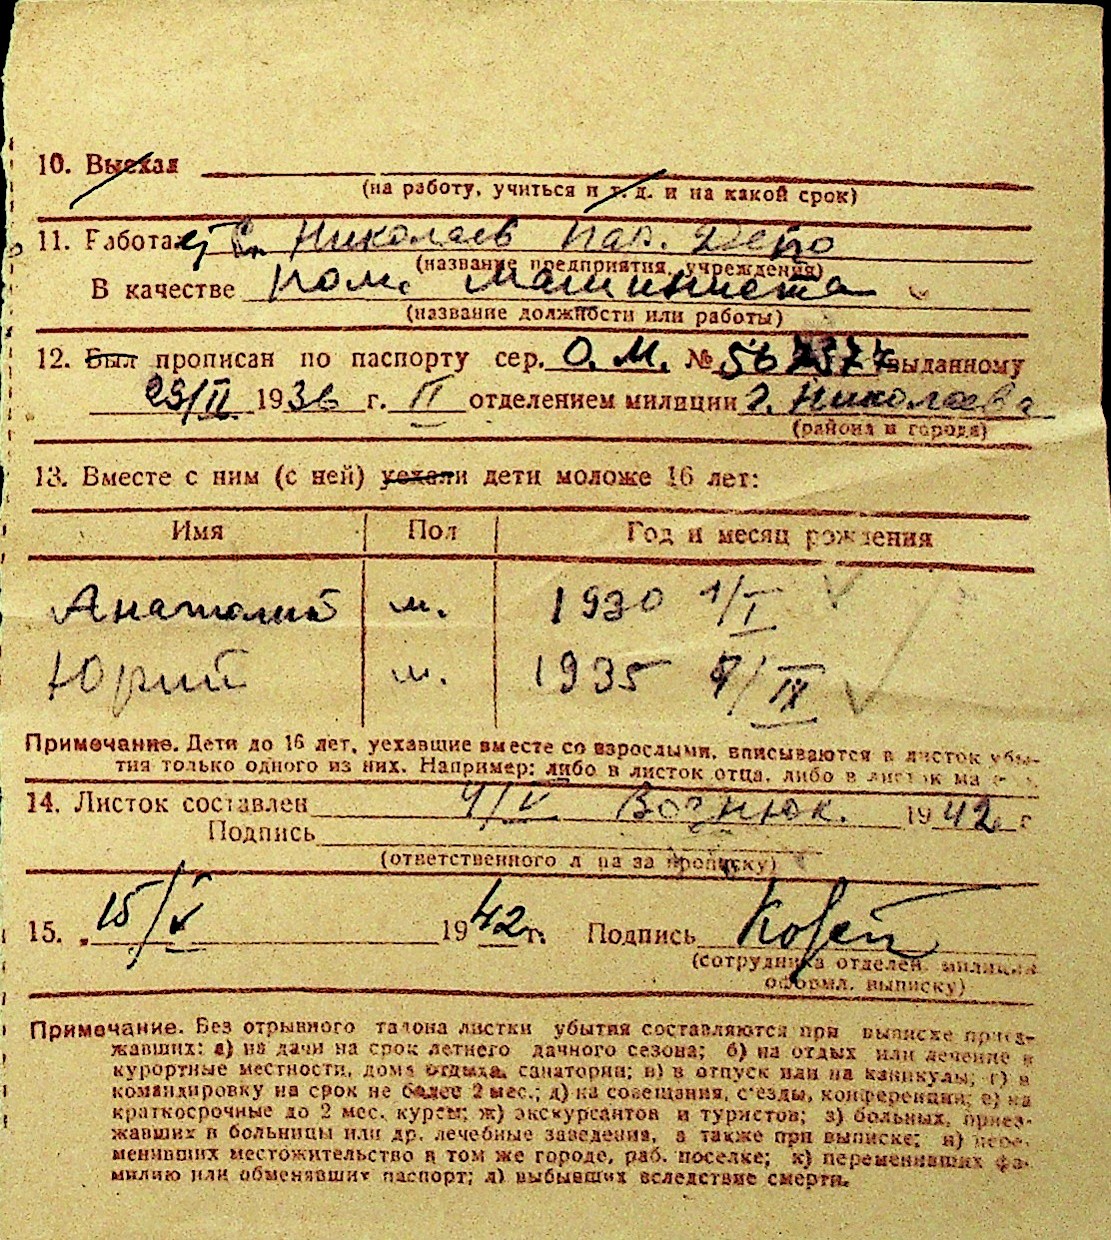 10. Выехал
(на работу, учиться и т. д. и на какой срок)
11. Работает Ст. Николаев Пар. Депо
(название предприятия, учреждения)
В качестве пом. машиниста
(название должности или работы)
12. Был прописан по паспорту сер. О. М. № 567377 выданному
29/II 1936 г. II отделением милиции г. Николаева
(района и города)
13. Вместе с ним (с ней) уехали дети моложе 16 лет:
Имя Пол Год и месяц рождения
Анатолий м. 1930 1/I
Юрий м. 1935 /IX
Примечание. Дети до 16 лет, уехавшие вместе со взрослыми, вписываются в листок убы-
тия только одного из них. Например: либо в листок отца, либо в листок
14. Листок составлен 4/V 1942 г
Подпись
(ответственного лица за прописку)
15. „ 15/V 1942 г. Подпись
(сотрудника отделен. милиции
оформл. выписку)
Примечание. Без отрывного талона листки убытия составляются при выписке приез-
жавших: а) на дачи на срок летнего дачного сезона; б) на отдых или лечение в
курортные местности, дома отдыха, санатории; в) в отпуск или на каникулы; г) в
командировку на срок не более 2 мес.; д) на совещания, съезды, конференции; е) на
краткосрочные до 2 мес. курсы; ж) экскурсантов и туристов; з) больных, приез-
жавших в больницы или др. лечебные заведения, а также при выписке; и) пере-
менивших местожительство в том же городе, раб. поселке; к) переменивших фа-
милию или обменявших паспорт; л) выбывших вследствие смерти.